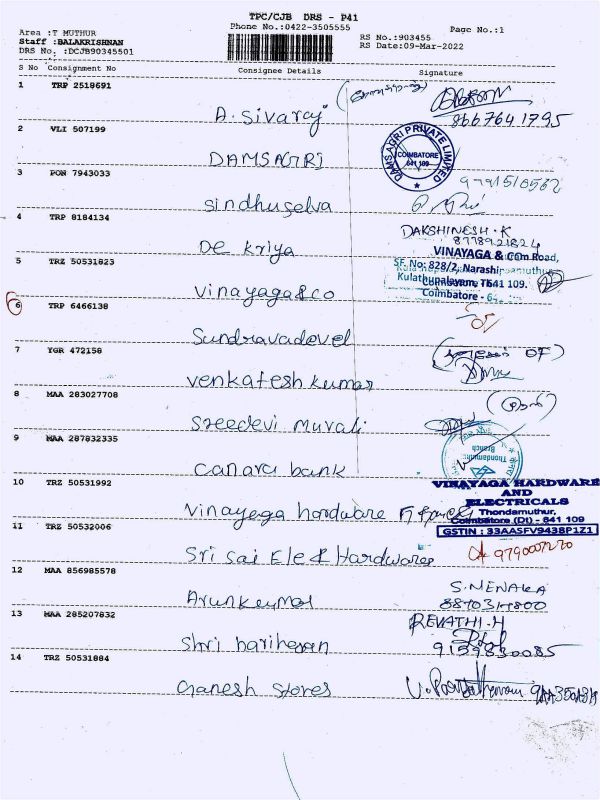 TPC/CJB DRS - P41
Area :T MUTHUR
Phone No.:0422-3505555
Page No.:1
Staff :BALAKRISHNAN
RS No.:903455
DRS No. :DCJB90345501
RS Date:09-Mar-2022
S No Consignment No Consignee Details Signature
1 TRP 2518691
A. Sivaraj
8667641795
2 VLI 507199
DAMSAGRI
DAMS AGRI PRIVATE LIMITED
COIMBATORE
641 109
3 PON 7943033
9791510562
Sindhuselva
4 TRP 8184134
DAKSHINESH.K
8778921824
De Kriya
VINAYAGA & CO
5 TRZ 50531823
SF. No: 828/2, Narashi
Kulathupalayam,
641 109.
Vinayaga & co
Coimbatore - 64
6 TRP 6466138
Sundravadevel
7 YGR 472158
Venkatesh kumar
8 MAA 283027708
Sreedevi Murali
9 MAA 287832335
Thondamuthur
Branch
Canara bank
10 TRZ 50531992
VINAYAGA HARDWARE
AND
ELECTRICALS
Thondamuthur,
Vinayega hardware
Coimbatore (Dt) - 641 109
11 TRZ 50532006
GSTIN : 33AASFV9438P1Z1
Sri Sai Ele & Hardwares
12 MAA 856985578
S. MENAKA
Arunkumar
13 MAA 285207832
REVATHI.H
Shri hariharan
9159830085
14 TRZ 50531884
Ganesh Stores